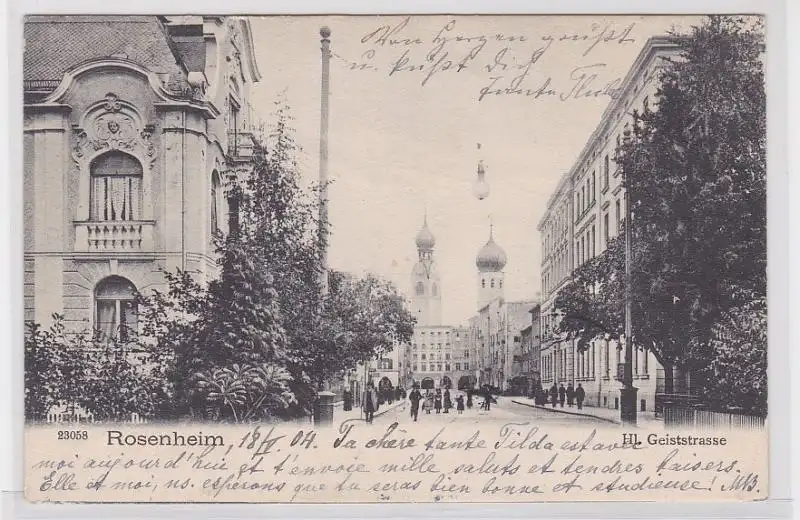 Von Herzen grüßt
u. küßt Dich
Tante Thilda
23058 Rosenheim, 18/V 04. Ta chère tante Tilda est avec Hl. Geiststrasse
moi aujourd'hui et t'envoie mille saluts et tendres baisers.
Elle et moi, ns. espérons que tu seras bien bonne et studieuse! MB.